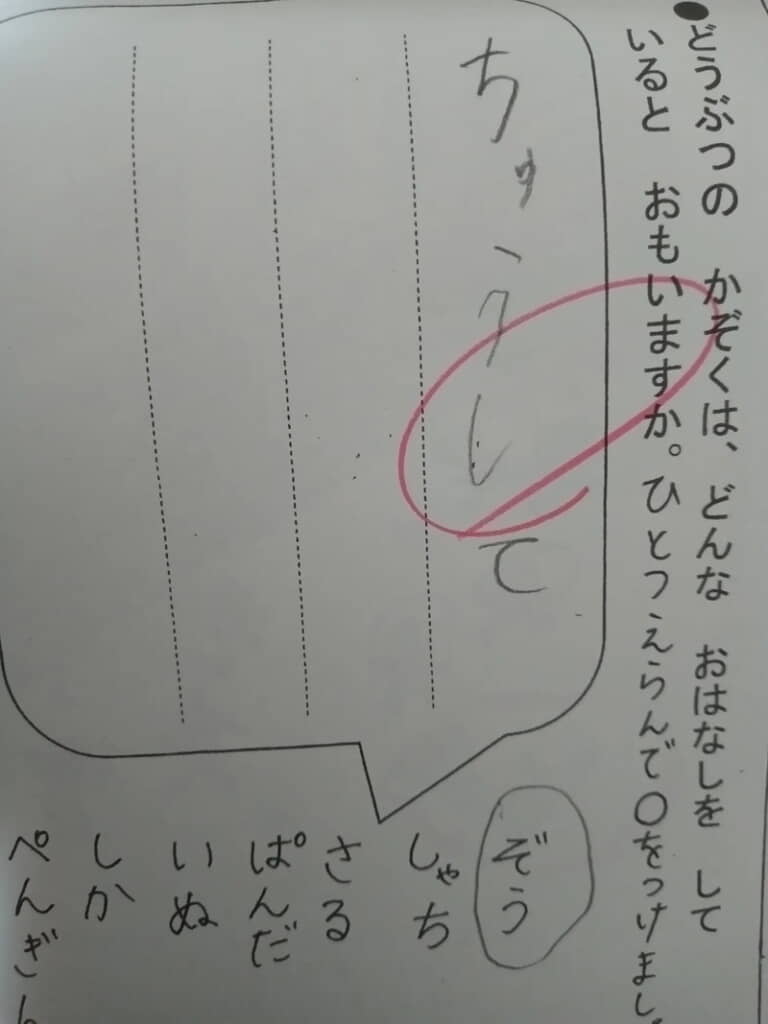 ●どうぶつの かぞくは、どんな おはなしを して
いると おもいますか。ひとつえらんで〇をつけまし
ちゅうして
ぞう
しゃち
さる
ぱんだ
いぬ
しか
ぺんぎん